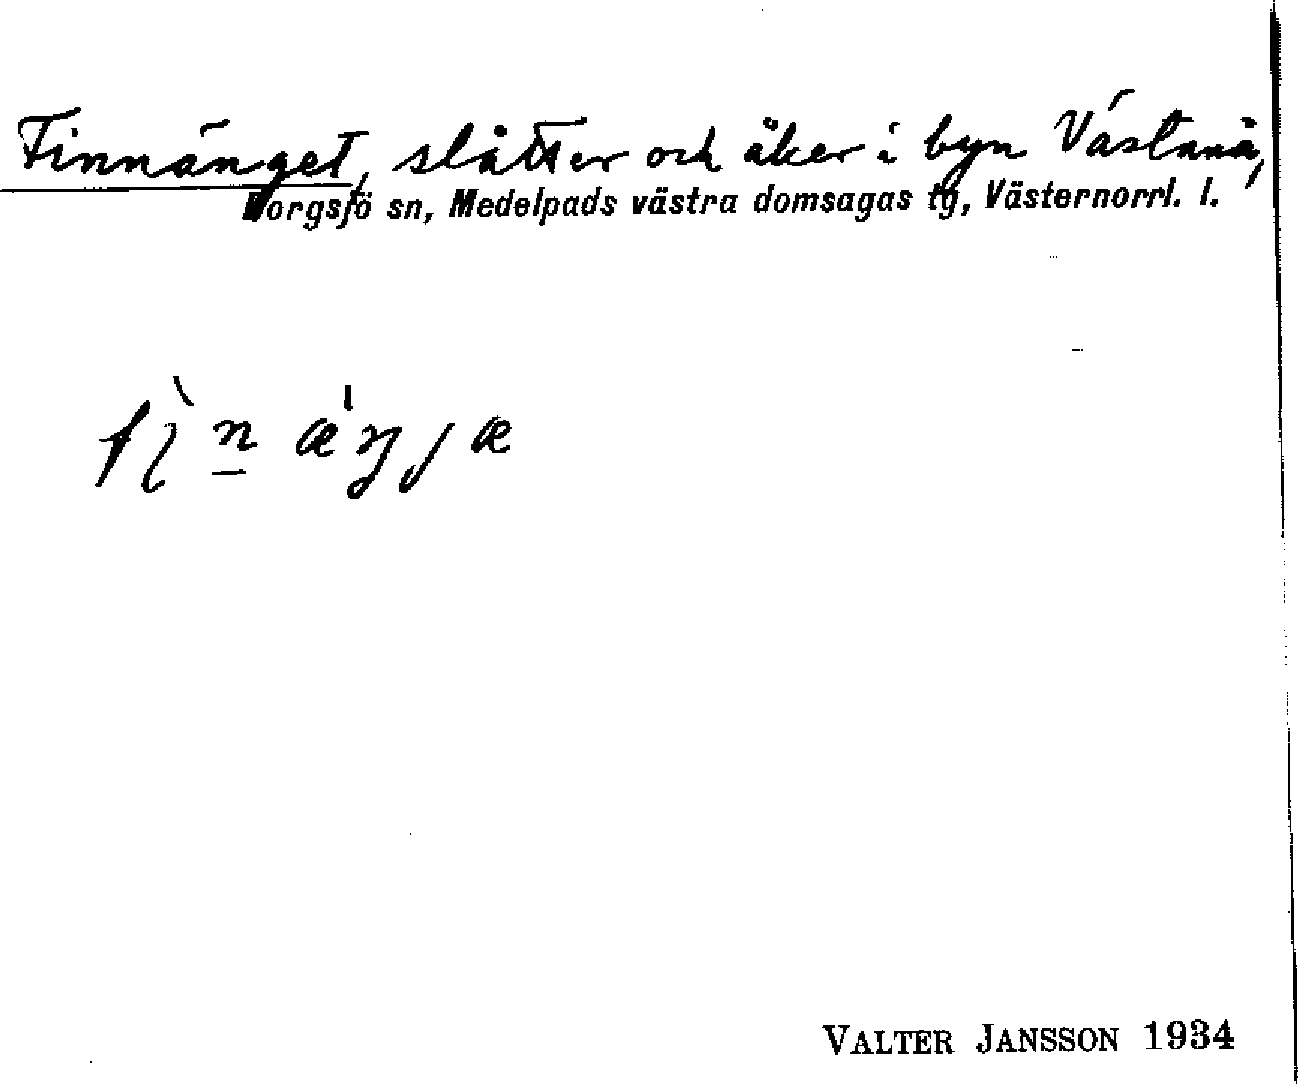 Finnänget, slåtter och åker i byn Västanå,
Borgsjö sn, Medelpads västra domsagas tg, Västernorrl. l.
fìn ǽŋjæ
VALTER JANSSON 1934